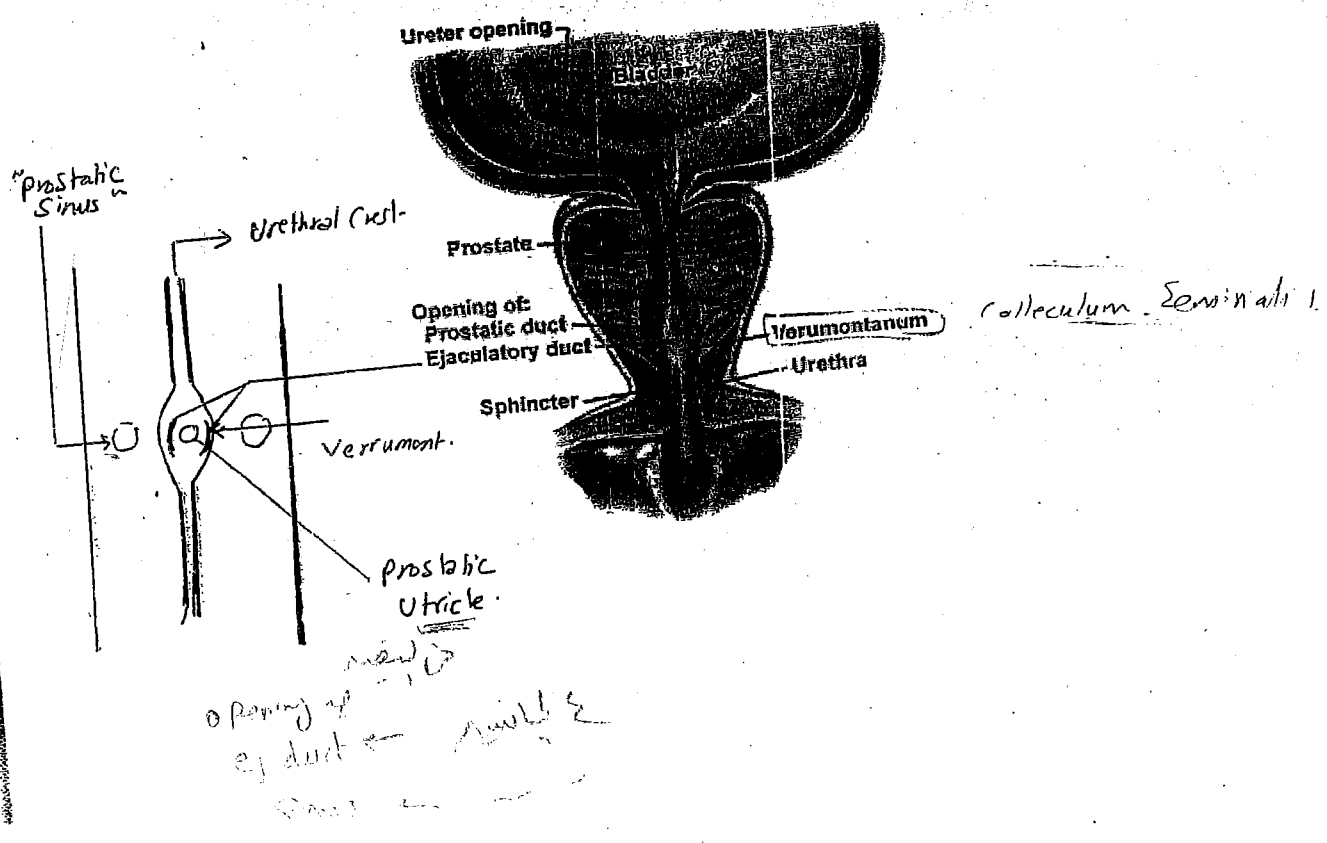 Ureter opening
Bladder
"Prostatic
Sinus"
Urethral Crest.
Prostate
Opening of:
Prostatic duct
Ejaculatory duct
Verumontanum
Colleculum
Urethra
Sphincter
Verrumont.
Prostatic
Utricle.
opening
ej duct ←